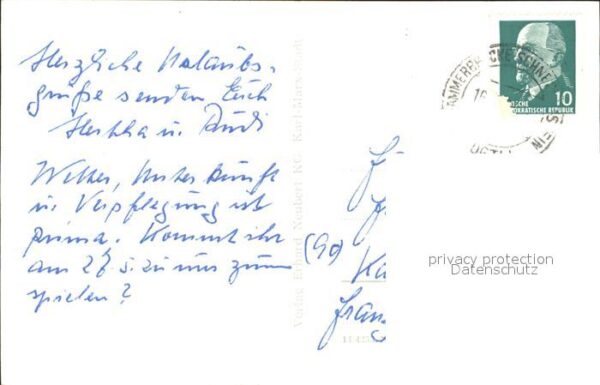 Herzliche Urlaubs-
grüße senden Euch
Hertha u. Rudi
Wetter, Unterkunft
u. Verpflegung ist
prima. Kommt ihr
am 28.5. zu uns zum
spielen?
Verlag Erhard Neubert KG Karl-Marx-Stadt
(90)
10
DEMOKRATISCHE REPUBLIK
privacy protection
Datenschutz